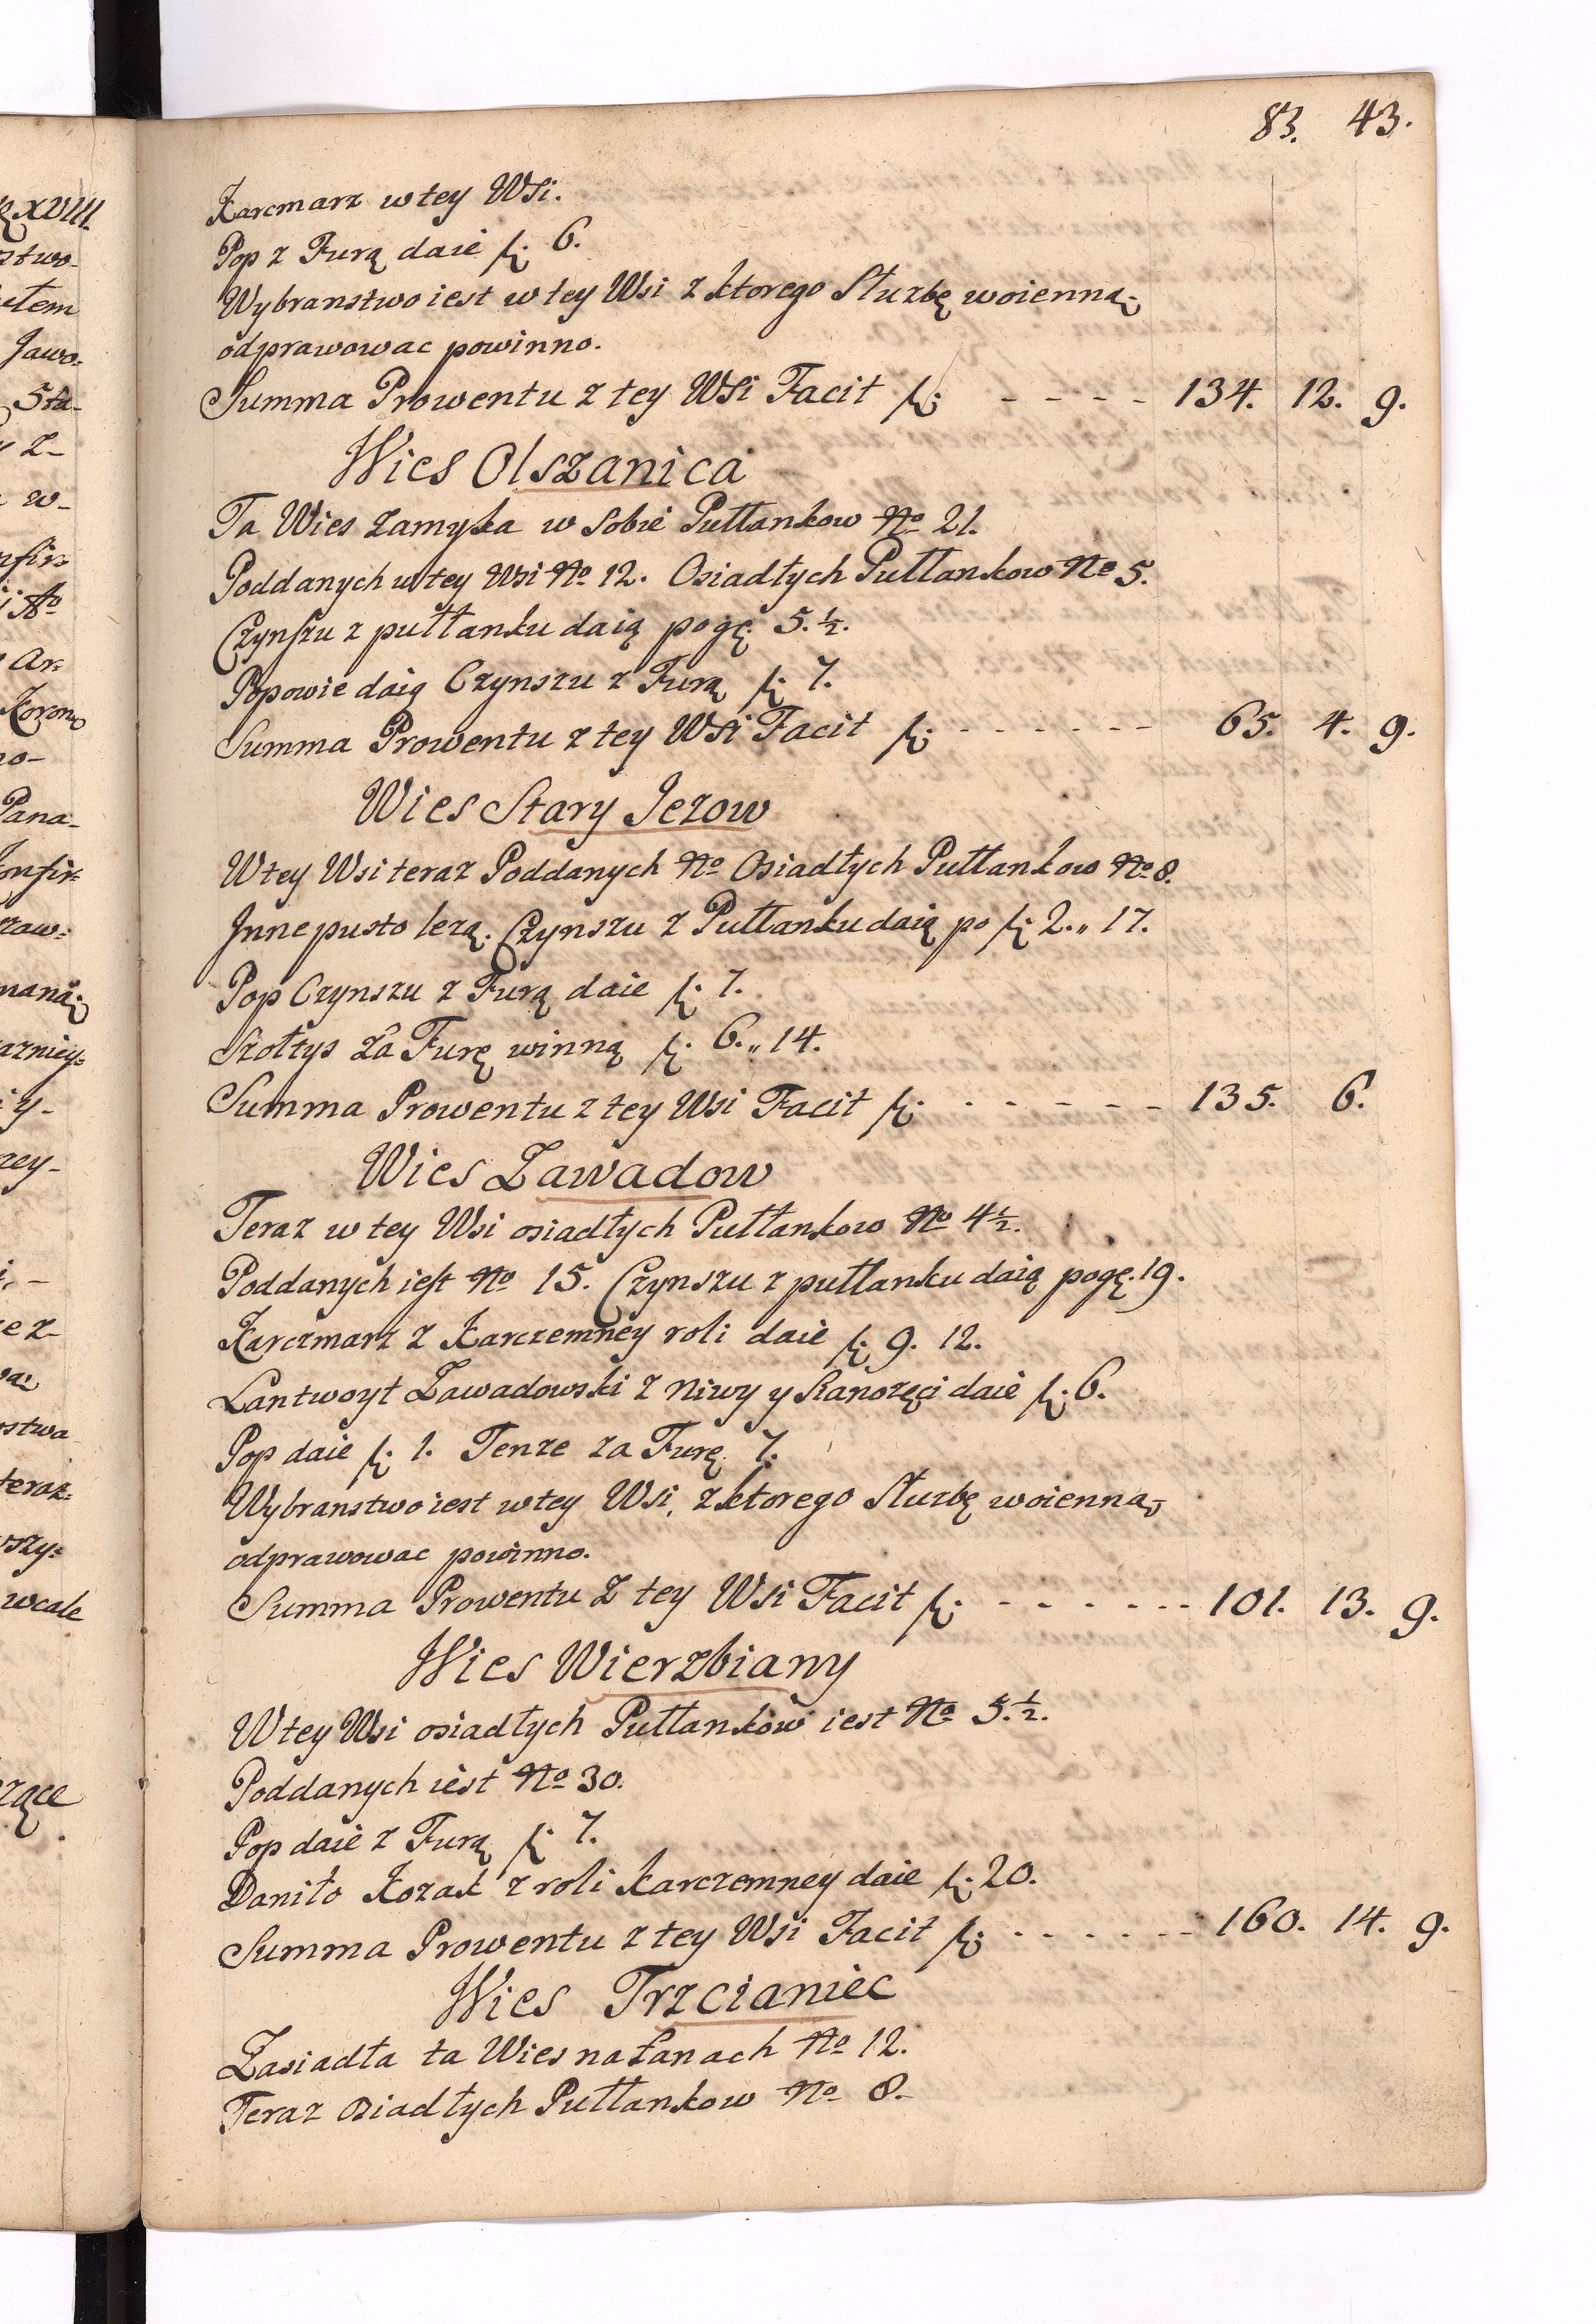 83. 43.
Karcmarz w tey Wsi.
Pop z Furą daie fl. 6.
Wybranstwo iest w tey Wsi z ktorego Służbę woienną
odprawowac powinno.
Summa Prowentu z tey Wsi Facit fl. - - - - 134. 12. 9.
Wies Olszanica
Ta Wies zamyka w Sobie Pułłankow No 21.
Poddanych w tey Wsi No 12. Osiadłych Pułłankow No 5.
Czynszu z pułłanku daią po gę. 5. ½.
Popowie daią Czynszu z Furą fl. 7.
Summa Prowentu z tey Wsi Facit fl. - - - - - - 65. 4. 9.
Wies Stary Jezow
W tey Wsi teraz Poddanych No Osiadłych Pułłankow No 8.
Inne pusto lezą. Czynszu z Pułłanku daią po fl. 2.„ 17.
Pop Czynszu z Furą daie fl. 7.
Szołtys za Furę winną fl. 6.„ 14.
Summa Prowentu z tey Wsi Facit fl. - - - - - - 135. 6.
Wies Zawadow
Teraz w tey Wsi osiadłych Pułłankow No 4½.
Poddanych iest No 15. Czynszu z pułłanku daią po gę. 19.
Karczmarz z Karczemney roli daie fl. 9. 12.
Lantwoyt Zawadowski z niwy y daie fl. 6.
Pop daie fl. 1. Tenze za Furę 7.
Wybranstwo iest w tey Wsi, z ktorego Służbę woienną
odprawowac powinno.
Summa Prowentu z tey Wsi Facit fl. - - - - - - 101. 13. 9.
Wies Wierzbiany
W tey Wsi osiadłych Pułłankow iest No 5.½.
Poddanych iest No 30.
Pop daie z Furą fl. 7.
Daniło Kozak z roli karczemney daie fl. 20.
Summa Prowentu z tey Wsi Facit fl. - - - - - - 160. 14. 9.
Wies Trzcianiec
Zasiadła ta Wies na Łanach No 12.
Teraz osiadłych Pułłankow No 8.